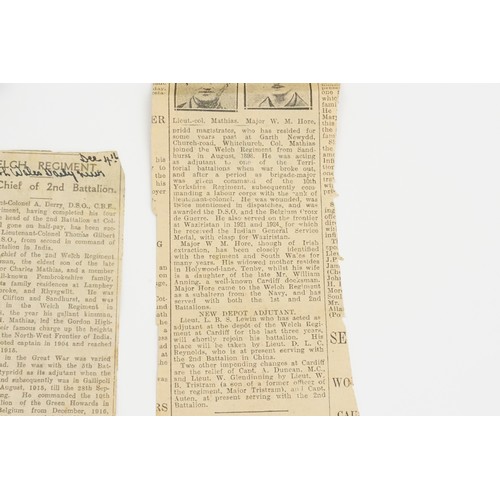 Dec 4th
ELCH REGIMENT.
Chief of 2nd Battalion.
nt-Colonel A. Derry, D.S.O., C.B.E.,
iment, having completed his tour
head of the 2nd Battalion at Col-
d gone on half-pay, has been suc-
Lieutenant-Colonel Thomas Gilbert
D.S.O., from second in command of
talion in India.
chief of the 2nd Welch Regiment
gentleman, the eldest son of the late
r Charles Mathias, and a member
ll-known Pembrokeshire family,
s family residences at Lamphey
broke, and Rhysgwilt. He was
Clifton and Sandhurst, and was
in the Welch Regiment in
, the year his gallant kinsman,
Mathias, led the Gordon High-
eir famous charge up the heights
the North-West Frontier of India.
oted captain in 1904 and reached
1915.
in the Great War was varied
ed. He was with the 9th Bat-
d subsequently was in Gallipoli
August, 1915, till the 28th Sep-
ng. He commanded the 10th
talion of the Green Howards in
Belgium from December, 1916,
Lieut.-col. Mathias. Major W. M. Hore.
eridd magistrates, who has resided for
some years past at Garth Newydd,
Church-road, Whitchurch. Col. Mathias
joined the Welch Regiment from Sand-
hurst in August, 1898. He was acting
as adjutant to one of the Terri-
torial battalions when war broke out,
and after a period as brigade-major
was given command of the 10th
Yorkshire Regiment, subsequently com-
manding a labour corps with the rank of
lieutenant-colonel. He was wounded, was
twice mentioned in dispatches, and was
awarded the D.S.O. and the Belgium Croix
de Guerre. He also served on the frontier
at Waziristan in 1921 and 1924, for which
he received the Indian General Service
Medal, with clasp for Waziristan.
Major W. M. Hore, though of Irish
extraction, has been closely identified
with the regiment and South Wales for
many years. His widowed mother resides
in Holywood-lane, Tenby, whilst his wife
is a daughter of the late Mr. William
Anning, a well-known Cardiff docksman.
Major Hore came to the Welch Regiment
as a subaltern from the Navy, and has
served with both the 1st and 2nd
Battalions.
NEW DEPOT ADJUTANT.
Lieut. L. B. S. Lewin who has acted as
adjutant at the depot of the Welch Regi-
ment at Cardiff for the last three years,
will shortly rejoin his battalion. His
place will be taken by Lieut. D. L. C.
Reynolds, who is at present serving with
the 2nd Battalion in China.
Two other impending changes at Cardiff
are the relief of Cant. A. Duncan, M.C.,
and Lieut. W. Glendinning by Lieut. W.
B. Tristram (a son of a former officer of
the regiment, Major Tristram), and Cant.
Auten, at present serving with the 2nd
Battalion.
ER
his
G
SE
WO
CAR